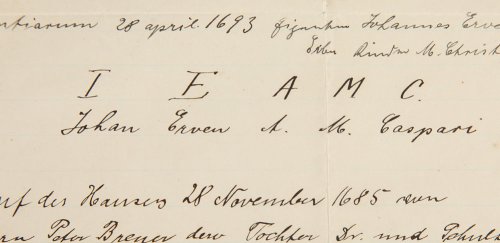 28 april. 1693 Johannes
M.
I E A M C.
Johan Erven A. M. Caspari
des Hauses 28 November 1685 von
Peter Breuer dem Tochter Dr. und